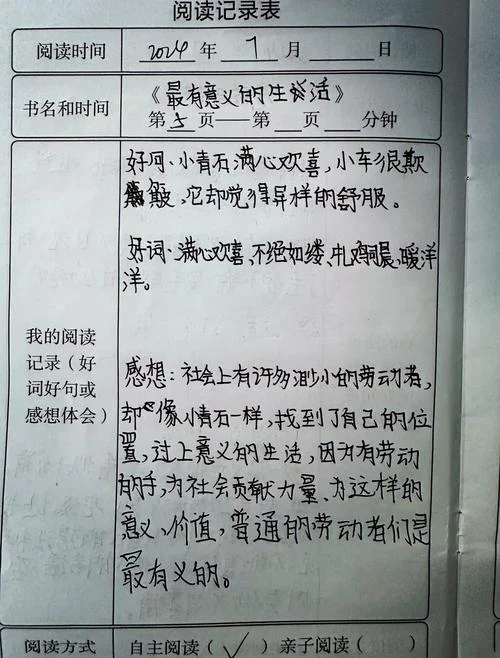 阅读记录表
阅读时间 2024 年 7 月 日
书名和时间 《最有意义的生活》
第 5 页——第 页 分钟
我的阅读记录（好词好句或感想体会）
好句:小青石满心欢喜,小车很欺
,它却觉得异样的舒服。
好词:满心欢喜、不绝如缕、扎鸡洞晨、暖洋
洋。
感想:社会上有许多渺小的劳动者,
却像小青石一样,找到了自己的位
置,过上意义的生活,因为有劳动
的手,为社会贡献力量、为这样的
意义、价值,普通的劳动者们是
最有义的。
阅读方式 自主阅读（√） 亲子阅读（ ）